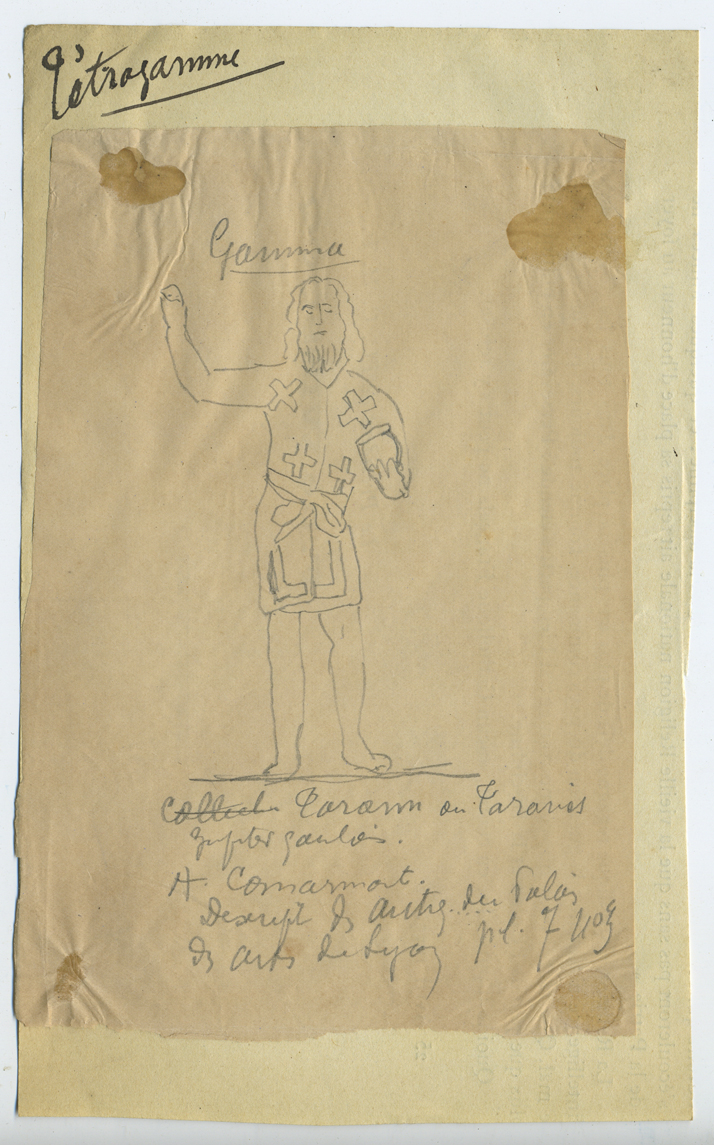 Tétragamme
Gamma
Collection Tarann ou Taranis
Jupiter gaulois.
A. Comarmont.
Descript des antiq. du Palais
des arts de Lyon pl. 7 no